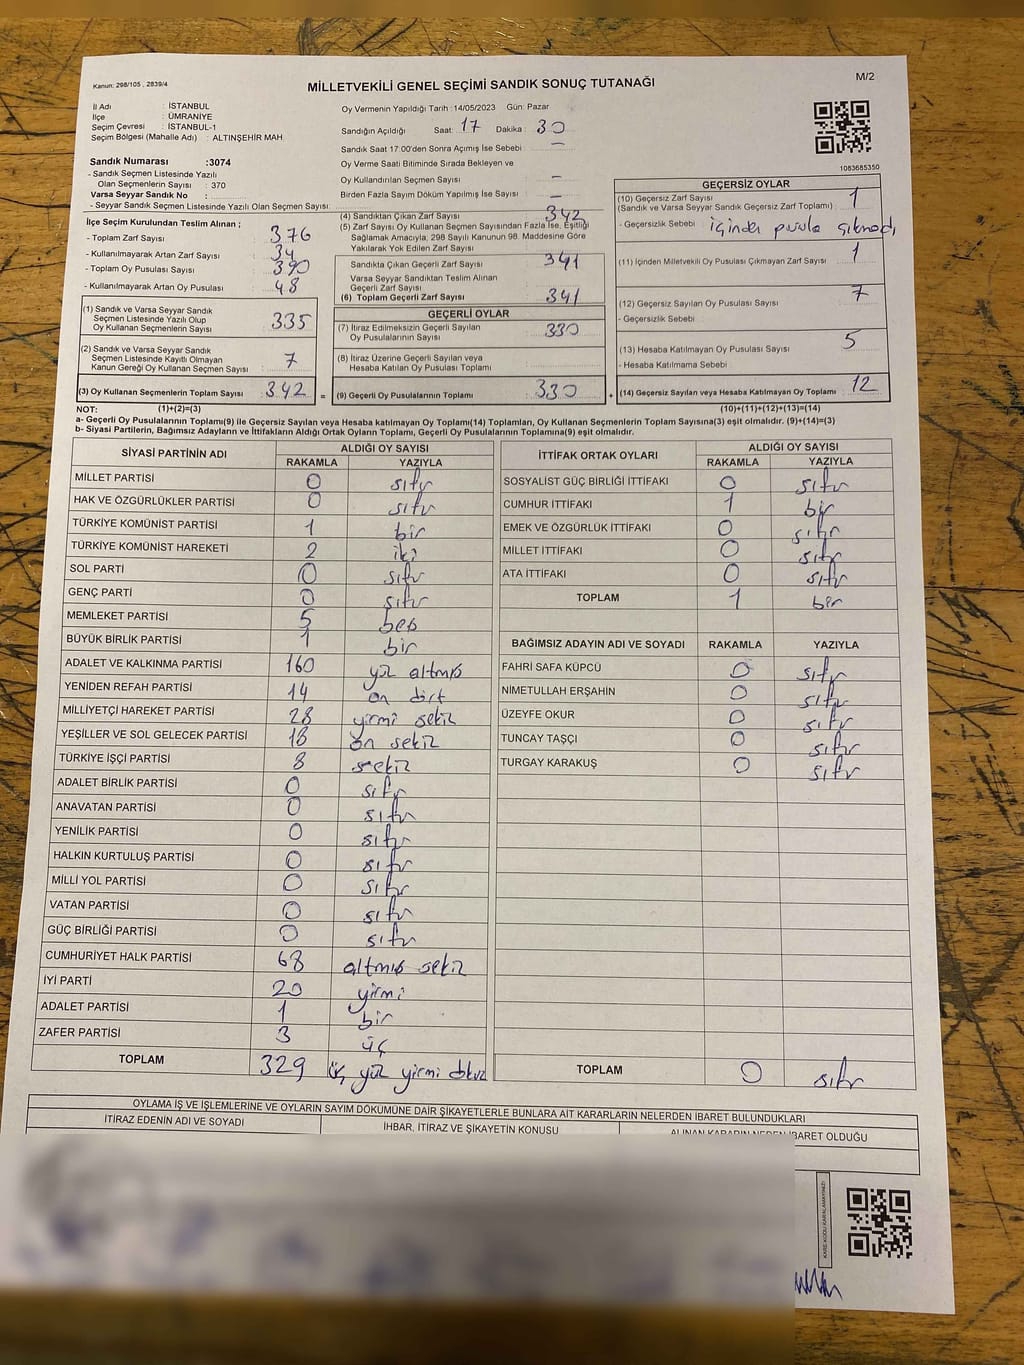 Kanun: 298/105 , 2839/4
MİLLETVEKİLİ GENEL SEÇİMİ SANDIK SONUÇ TUTANAĞI
M/2
İl Adı : İSTANBUL
İlçe : ÜMRANİYE
Seçim Çevresi : İSTANBUL-1
Seçim Bölgesi (Mahalle Adı) : ALTINŞEHİR MAH
Sandık Numarası :3074
- Sandık Seçmen Listesinde Yazılı
Olan Seçmenlerin Sayısı : 370
Varsa Seyyar Sandık No :
- Seyyar Sandık Seçmen Listesinde Yazılı Olan Seçmen Sayısı:
Oy Vermenin Yapıldığı Tarih : 14/05/2023 Gün: Pazar
Sandığın Açıldığı Saat: 17 Dakika : 30
Sandık Saat 17:00'den Sonra Açımış İse Sebebi –
Oy Verme Saati Bitiminde Sırada Bekleyen ve
Oy Kullandırılan Seçmen Sayısı –
Birden Fazla Sayım Döküm Yapılmış İse Sayısı –
1083685350
İlçe Seçim Kurulundan Teslim Alınan ;
- Toplam Zarf Sayısı : 376
- Kullanılmayarak Artan Zarf Sayısı : 34
- Toplam Oy Pusulası Sayısı : 390
- Kullanılmayarak Artan Oy Pusulası : 48
(1) Sandık ve Varsa Seyyar Sandık
Seçmen Listesinde Yazılı Olup
Oy Kullanan Seçmenlerin Sayısı : 335
(2) Sandık ve Varsa Seyyar Sandık
Seçmen Listesinde Kayıtlı Olmayan
Kanun Gereği Oy Kullanan Seçmen Sayısı : 7
(3) Oy Kullanan Seçmenlerin Toplam Sayısı : 342
=
(4) Sandıktan Çıkan Zarf Sayısı 342
(5) Zarf Sayısı Oy Kullanan Seçmen Sayısından Fazla İse, Eşitliği
Sağlamak Amacıyla; 298 Sayılı Kanunun 98. Maddesine Göre
Yakılarak Yok Edilen Zarf Sayısı
Sandıkta Çıkan Geçerli Zarf Sayısı 341
Varsa Seyyar Sandıktan Teslim Alınan
Geçerli Zarf Sayısı
(6) Toplam Geçerli Zarf Sayısı 341
GEÇERLİ OYLAR
(7) İtiraz Edilmeksizin Geçerli Sayılan
Oy Pusulalarının Sayısı : 330
(8) İtiraz Üzerine Geçerli Sayılan veya
Hesaba Katılan Oy Pusulası Toplamı :
(9) Geçerli Oy Pusulalarının Toplamı : 330
+
GEÇERSİZ OYLAR
(10) Geçersiz Zarf Sayısı
(Sandık ve Varsa Seyyar Sandık Geçersiz Zarf Toplamı) : 1
- Geçersizlik Sebebi : içinden pusula çıkmadı
(11) İçinden Milletvekili Oy Pusulası Çıkmayan Zarf Sayısı : 1
(12) Geçersiz Sayılan Oy Pusulası Sayısı : 7
- Geçersizlik Sebebi :
(13) Hesaba Katılmayan Oy Pusulası Sayısı : 5
- Hesaba Katılmama Sebebi :
(14) Geçersiz Sayılan veya Hesaba Katılmayan Oy Toplamı : 12
NOT: (1)+(2)=(3) (10)+(11)+(12)+(13)=(14)
a- Geçerli Oy Pusulalarının Toplamı(9) ile Geçersiz Sayılan veya Hesaba katılmayan Oy Toplamı(14) Toplamları, Oy Kullanan Seçmenlerin Toplam Sayısına(3) eşit olmalıdır. (9)+(14)=(3)
b- Siyasi Partilerin, Bağımsız Adayların ve İttifakların Aldığı Ortak Oyların Toplamı, Geçerli Oy Pusulalarının Toplamına(9) eşit olmalıdır.
SİYASİ PARTİNİN ADI ALDIĞI OY SAYISI
RAKAMLA YAZIYLA
MİLLET PARTİSİ 0 sıfır
HAK VE ÖZGÜRLÜKLER PARTİSİ 0 sıfır
TÜRKİYE KOMÜNİST PARTİSİ 1 bir
TÜRKİYE KOMÜNİST HAREKETİ 2 iki
SOL PARTİ 0 sıfır
GENÇ PARTİ 0 sıfır
MEMLEKET PARTİSİ 5 beş
BÜYÜK BİRLİK PARTİSİ 1 bir
ADALET VE KALKINMA PARTİSİ 160 yüz altmış
YENİDEN REFAH PARTİSİ 14 on dört
MİLLİYETÇİ HAREKET PARTİSİ 28 yirmi sekiz
YEŞİLLER VE SOL GELECEK PARTİSİ 18 on sekiz
TÜRKİYE İŞÇİ PARTİSİ 8 sekiz
ADALET BİRLİK PARTİSİ 0 sıfır
ANAVATAN PARTİSİ 0 sıfır
YENİLİK PARTİSİ 0 sıfır
HALKIN KURTULUŞ PARTİSİ 0 sıfır
MİLLİ YOL PARTİSİ 0 sıfır
VATAN PARTİSİ 0 sıfır
GÜÇ BİRLİĞİ PARTİSİ 0 sıfır
CUMHURİYET HALK PARTİSİ 68 altmış sekiz
İYİ PARTİ 20 yirmi
ADALET PARTİSİ 1 bir
ZAFER PARTİSİ 3 üç
TOPLAM 329 üç yüz yirmi dokuz
İTTİFAK ORTAK OYLARI ALDIĞI OY SAYISI
RAKAMLA YAZIYLA
SOSYALİST GÜÇ BİRLİĞİ İTTİFAKI 0 sıfır
CUMHUR İTTİFAKI 1 bir
EMEK VE ÖZGÜRLÜK İTTİFAKI 0 sıfır
MİLLET İTTİFAKI 0 sıfır
ATA İTTİFAKI 0 sıfır
TOPLAM 1 bir
BAĞIMSIZ ADAYIN ADI VE SOYADI RAKAMLA YAZIYLA
FAHRİ SAFA KÜPCÜ 0 sıfır
NİMETULLAH ERŞAHİN 0 sıfır
ÜZEYFE OKUR 0 sıfır
TUNCAY TAŞÇI 0 sıfır
TURGAY KARAKUŞ 0 sıfır
TOPLAM 0 sıfır
OYLAMA İŞ VE İŞLEMLERİNE VE OYLARIN SAYIM DÖKÜMÜNE DAİR ŞİKAYETLERLE BUNLARA AİT KARARLARIN NELERDEN İBARET BULUNDUKLARI
İTİRAZ EDENİN ADI VE SOYADI İHBAR, İTİRAZ VE ŞİKAYETİN KONUSU ALINAN KARARIN NEDEN İBARET OLDUĞU
KAREKODU KARALAMAYINIZ!